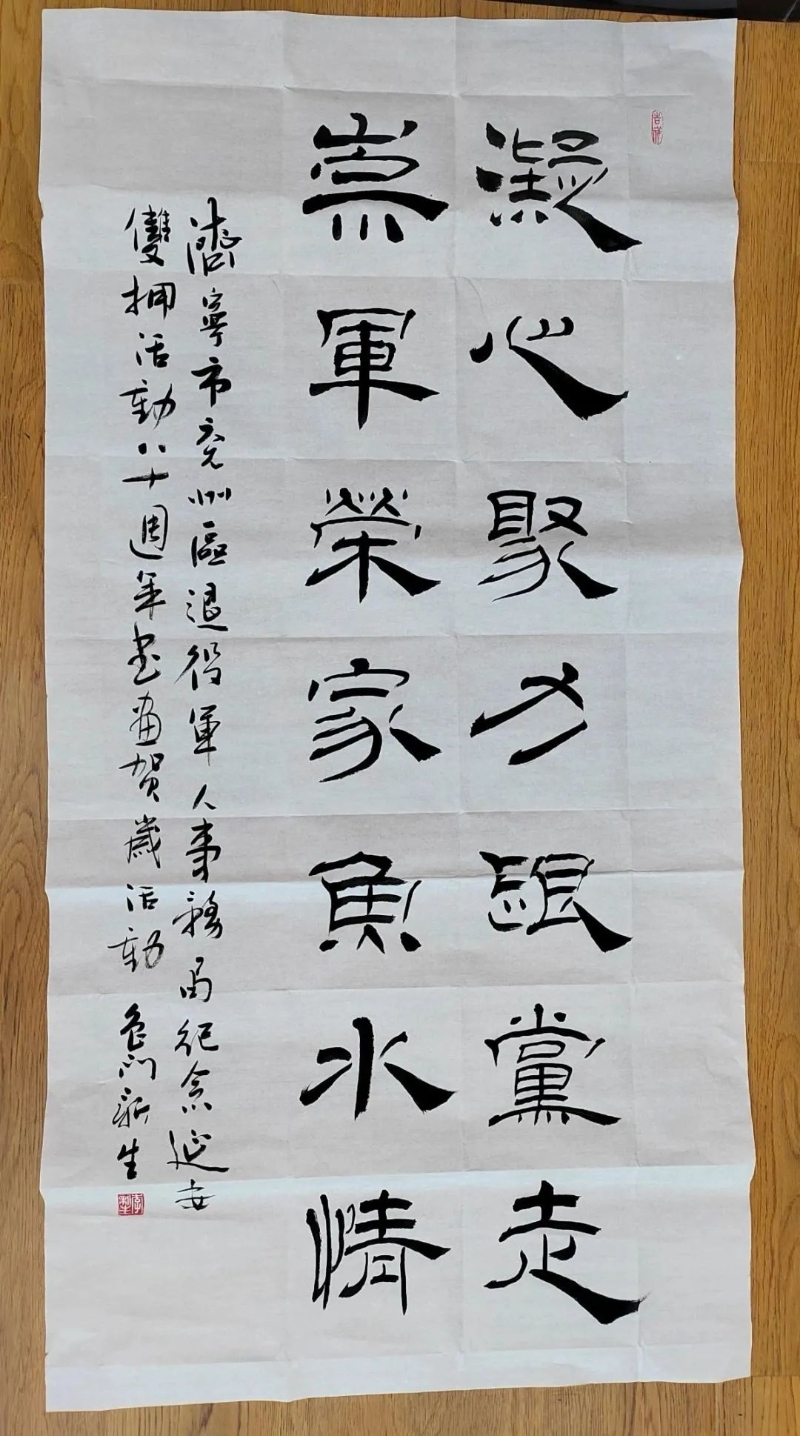 凝心聚力跟黨走
崇軍榮家魚水情
濟寧市兖州區退役軍人事務局纪念延安
雙拥活動八十週年书画贺歲活動 新生